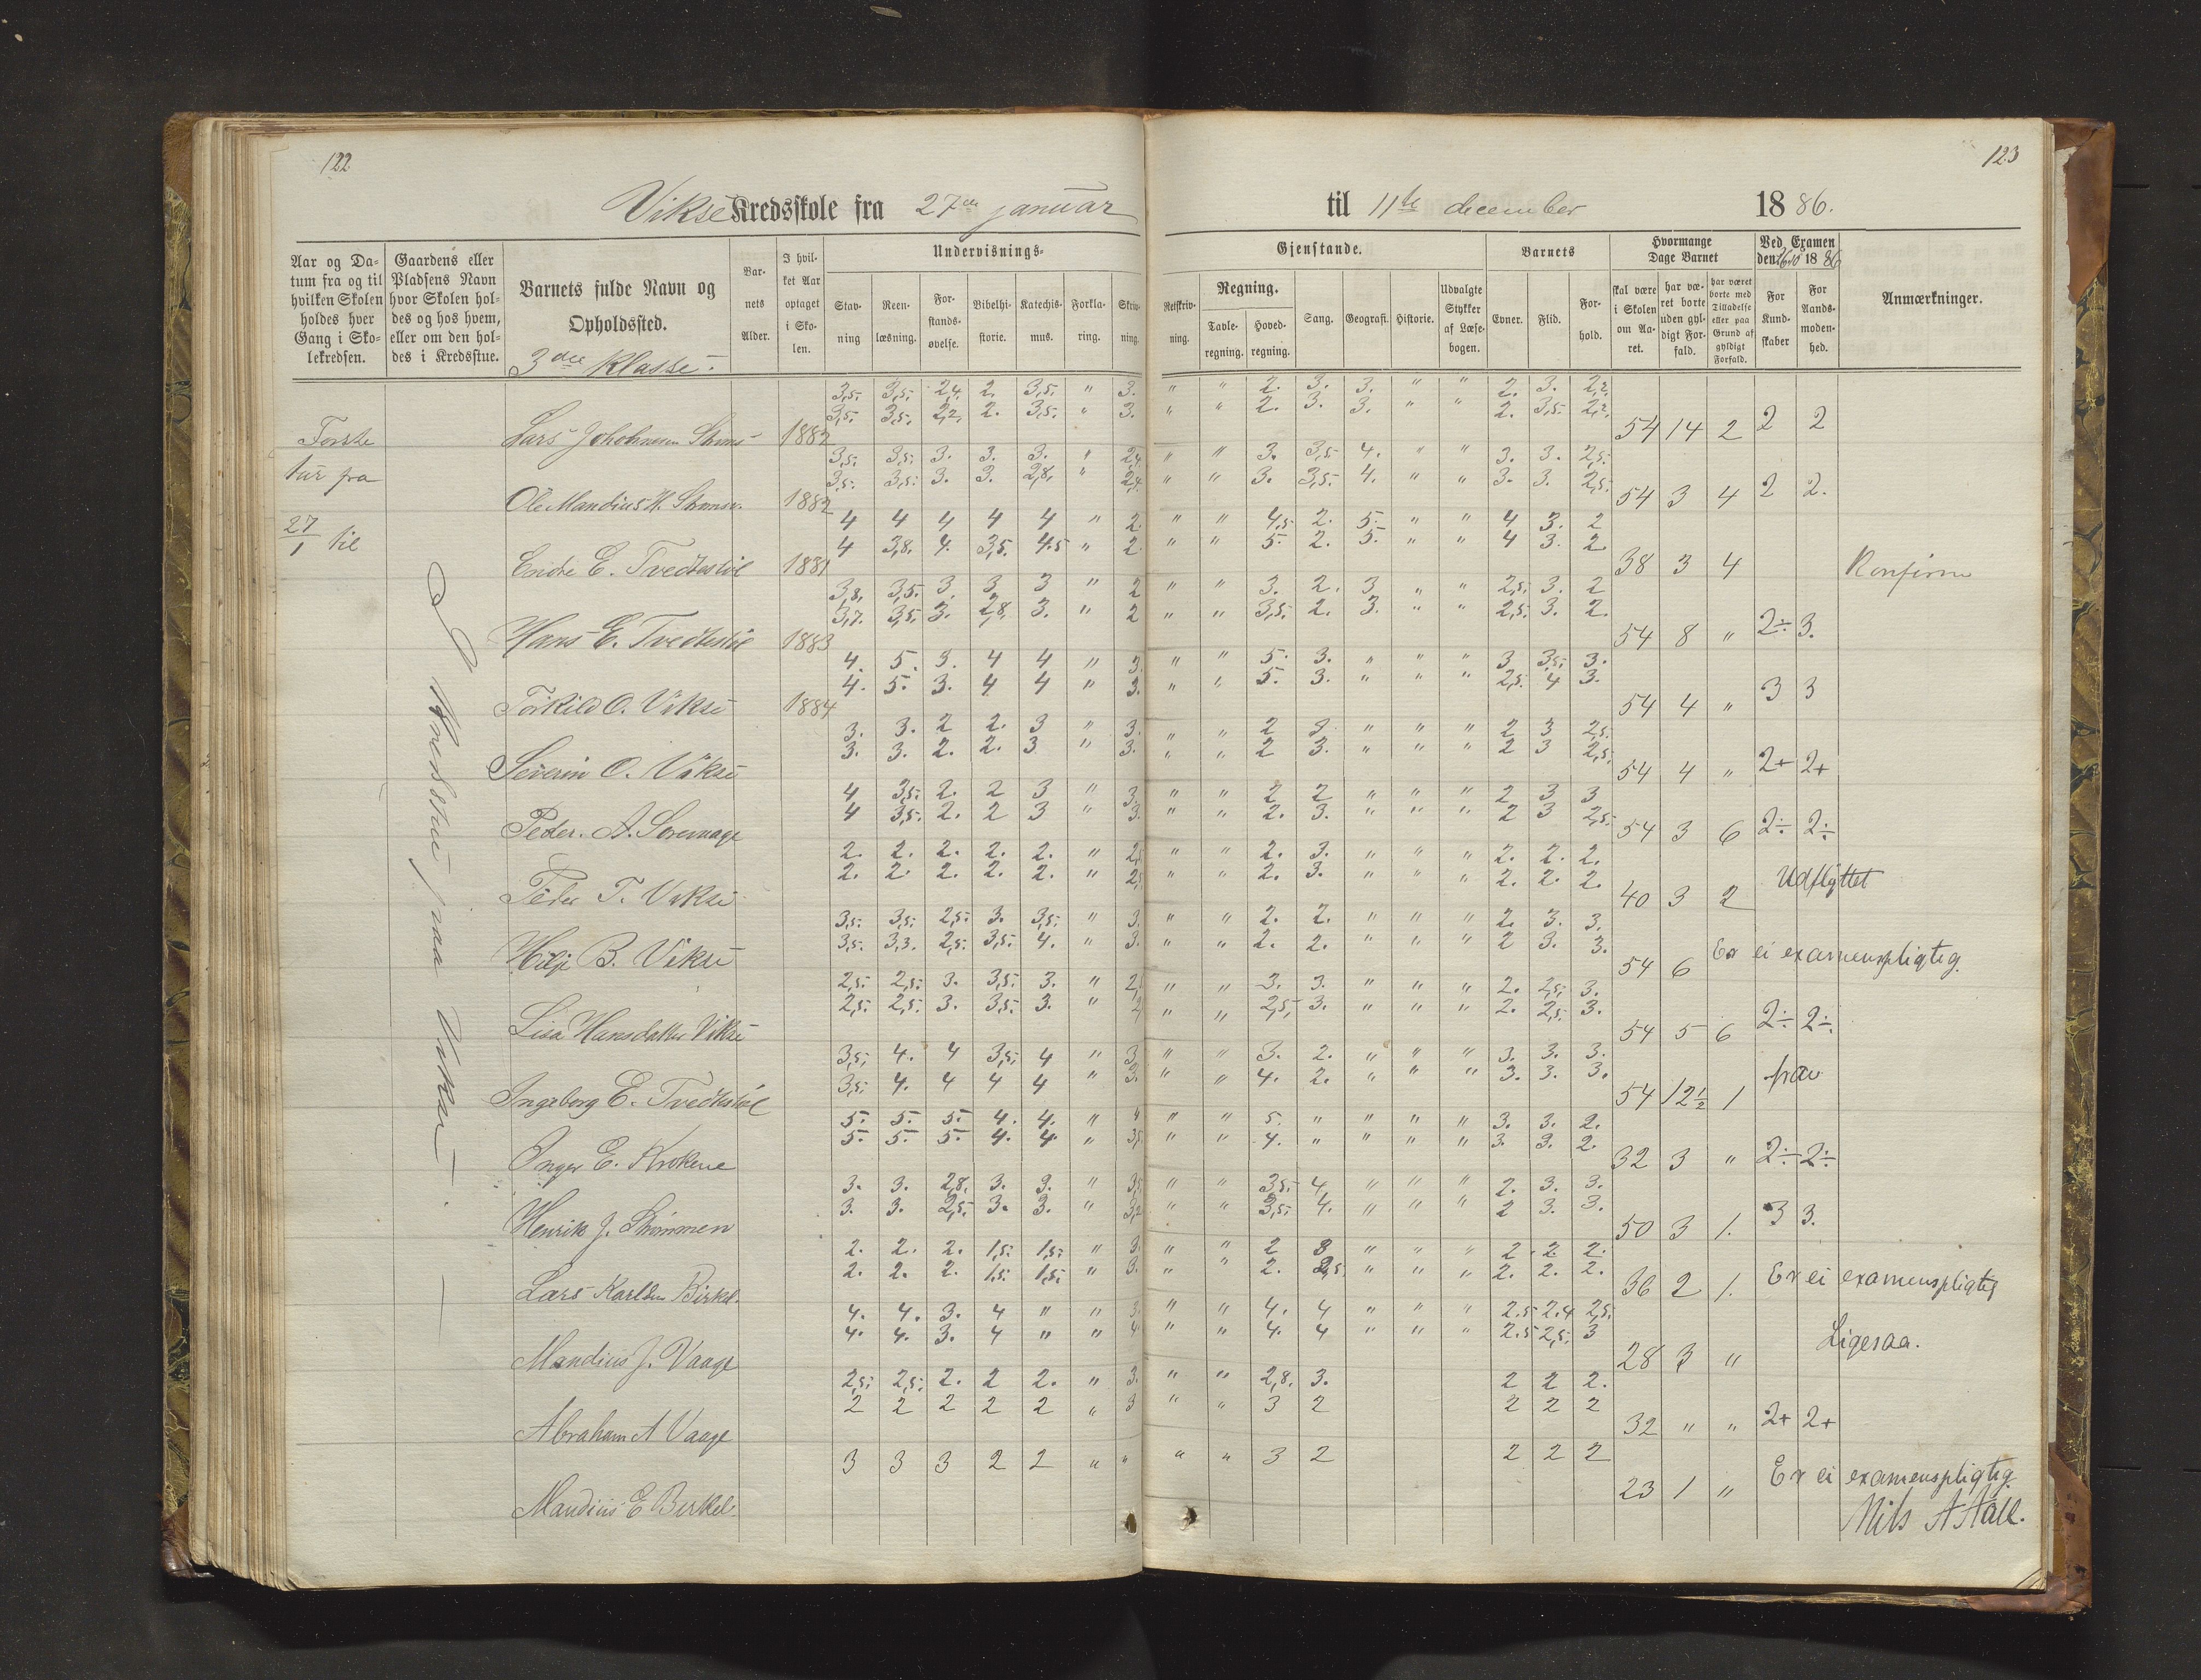 122
123
Vikse Kredsskole fra 27de januar til 11te december 1886.
Aar og Datum fra og til hvilken Skolen holdes hver Gang i Skolekredsen.
Gaardens eller Pladsens Navn hvor Skolen holdes og hos hvem, eller om den holdes i Kredsstue.
Barnets fulde Navn og Opholdssted.
3die Klasse.
Barnets Alder.
I hvilket Aar optaget i Skolen.
Undervisnings-
Gjenstande.
Stavning
Reenlæsning.
Forstandsøvelse.
Bibelhistorie.
Katechismus.
Forklaring.
Skrivning.
Retskrivning.
Regning.
Tavleregning.
Hovedregning.
Sang.
Geografi.
Historie.
Udvalgte Stykker af Læsebogen.
Barnets
Evner.
Flid.
Forhold.
Hvormange Dage Barnet
skal være i Skolen om Aaret.
har været borte uden gyldigt Forfald.
har været borte med Tilladelse eller paa Grund af gyldigt Forfald.
Ved Examen den 16/10 1886
For Kundskaber
For Aandsmodenhed.
Anmærkninger.
Første
tur fra
27/1 til
3,5. 3,5. 2,4. 2. 3,5. " 3. " " 2. 3. 3. " " 2. 3. 2,2.
3,5. 3,5. 2,2. 2. 3,5. " 3. " " 2. 3. 3. " " 2. 3,5. 2,2.
1882 54 14 2 2 2
3,5. 3,5. 3. 3. 3. " 2,4. " " 3. 3,5 4. " " 3. 3. 2,5.
3,5. 3,5. 3. 3. 2,8. " 2,4. " " 3. 3,5. 4. " " 3. 3. 2,5.
Ole Mandius 1882 54 3 4 2 2.
4 4 4 4 4 " 2. " " 4,5 2. 5. " " 4 3. 2
4 3,8. 4. 3,5. 4.5 " 2. " " 5. 2. 5. " " 4 3. 2
Endre E. Tvedtestøl 1881 38 3 4 Konfirm
3,8. 3,5. 3. 3 3 " 2 " " 3. 2. 3 " " 2,5. 3. 2
3,7. 3,5. 3. 2,8. 3. " 2 " " 3,5. 2. 3. " " 2,5. 3. 2.
Hans E. Tvedtestøl 1883 54 8 " 2÷ 3.
4. 5. 3. 4 4 " 3. " " 5. 3. " " " 3 3,5. 3.
4. 5. 3. 4 4 " 3. " " 5. 3. " " " 2,5. 4 3.
Torkild O. Vikse 1884 54 4 " 3 3
3. 3. 2 2. 3 " 3. " " 2 3. " " " 2 3 2,5.
3. 3. 2. 2. 3 " 3. " " 2 3. " " " 2 3 2,5.
Severin O. Vikse 54 4 " 2+ 2+
4 3,5. 2. 2 3 " 3. " " 2 2 " " " 2 3 3
4 3,5. 2. 2 3 " 3. " " 2. 3. " " " 2 3 2,5.
Peder. A. 54 3 6 2÷ 2÷
2. 2. 2. 2. 2. " 2,5 " " 2. 3. " " " 2. 2. 2.
2. 2. 2. 2. 2. " 2,5 " " 2. 3. " " " 2. 2. 2.
Peder T. Vikse 40 3 2 Udflyttet
3,5. 3,5. 2,5. 3. 3,5. " 3. " " 2. 2. " " " 2. 3. 3.
3,5. 3,3. 2,5. 3,5. 4. " 3. " " 2. 2. " " " 2 3. 3.
B. Vikse 54 6 Er ei examenspligtig.
2,5. 2,5. 3. 3,5. 3. " 2, " " 3. 3. " " " 2. 2,5. 3.
2,5. 2,5. 3. 3,5. 3. " 2, " " 2,5. 3. " " " 2. 2,5. 3.
Lisa Hansdatter Vikse 54 5 6 2÷ 2÷.
3,5. 4. 4 3,5. 4 " 3 " " 3. 2. " " " 3. 3. 3.
3,5. 4. 4 4 4 " 3. " " 4. 2. " " " 3. 3. 3.
Ingeborg E. Tvedtestøl 54 12½ 1 frav
5. 5. 5. 4. 4. " 4 " " 5. " " " " 3. 3. 2.
5. 5. 5. 4. 4. " 3,5 " " 4. " " " " 3. 3. 2.
Inger E. Krokene 32 3 " 2÷ 2÷
3. 3. 2,8. 3. 3. " 3,5 " " 3,5. 4. " " " 2. 3. 3.
3. 3. 2,5. 3. 3. " 3,2 " " 3,5. 4. " " " 2 3. 3.
Henrik J. Strømmen 50 3 1. 3 3.
2. 2. 2. 1,5. 1,5. " 3. " " 2 3 " " " 2. 2. 2.
2. 2. 2. 1,5. 1,5. " 3. " " 2. 2,5. " " " 2. 2. 2.
Lars Karlsen Birkel. 36 2 1. Er ei examenspligtig
4. 4. 3. 4 " " 3. " " 4. 4 " " " 2.5 2.4 2,5.
4. 4. 3. 4 " " 4 " " 4. 4 " " " 2.5 2,5. 3
Mandius J. Vaage 28 3 " Ligesaa.
2,5. 2,5. 2. 2 2. " 3. " " 2,8. 3. 2 2 2.
2 2 2 2 2 " 3 " " 3 2 2 2 2
Abraham A Vaage 32 " " 2+ 2+
3 3 3 2 2 " " " " 3 2 2 2 2
Mandius E Birkel. 23 1 " Er ei examenspligtig.
Nils A Aall.